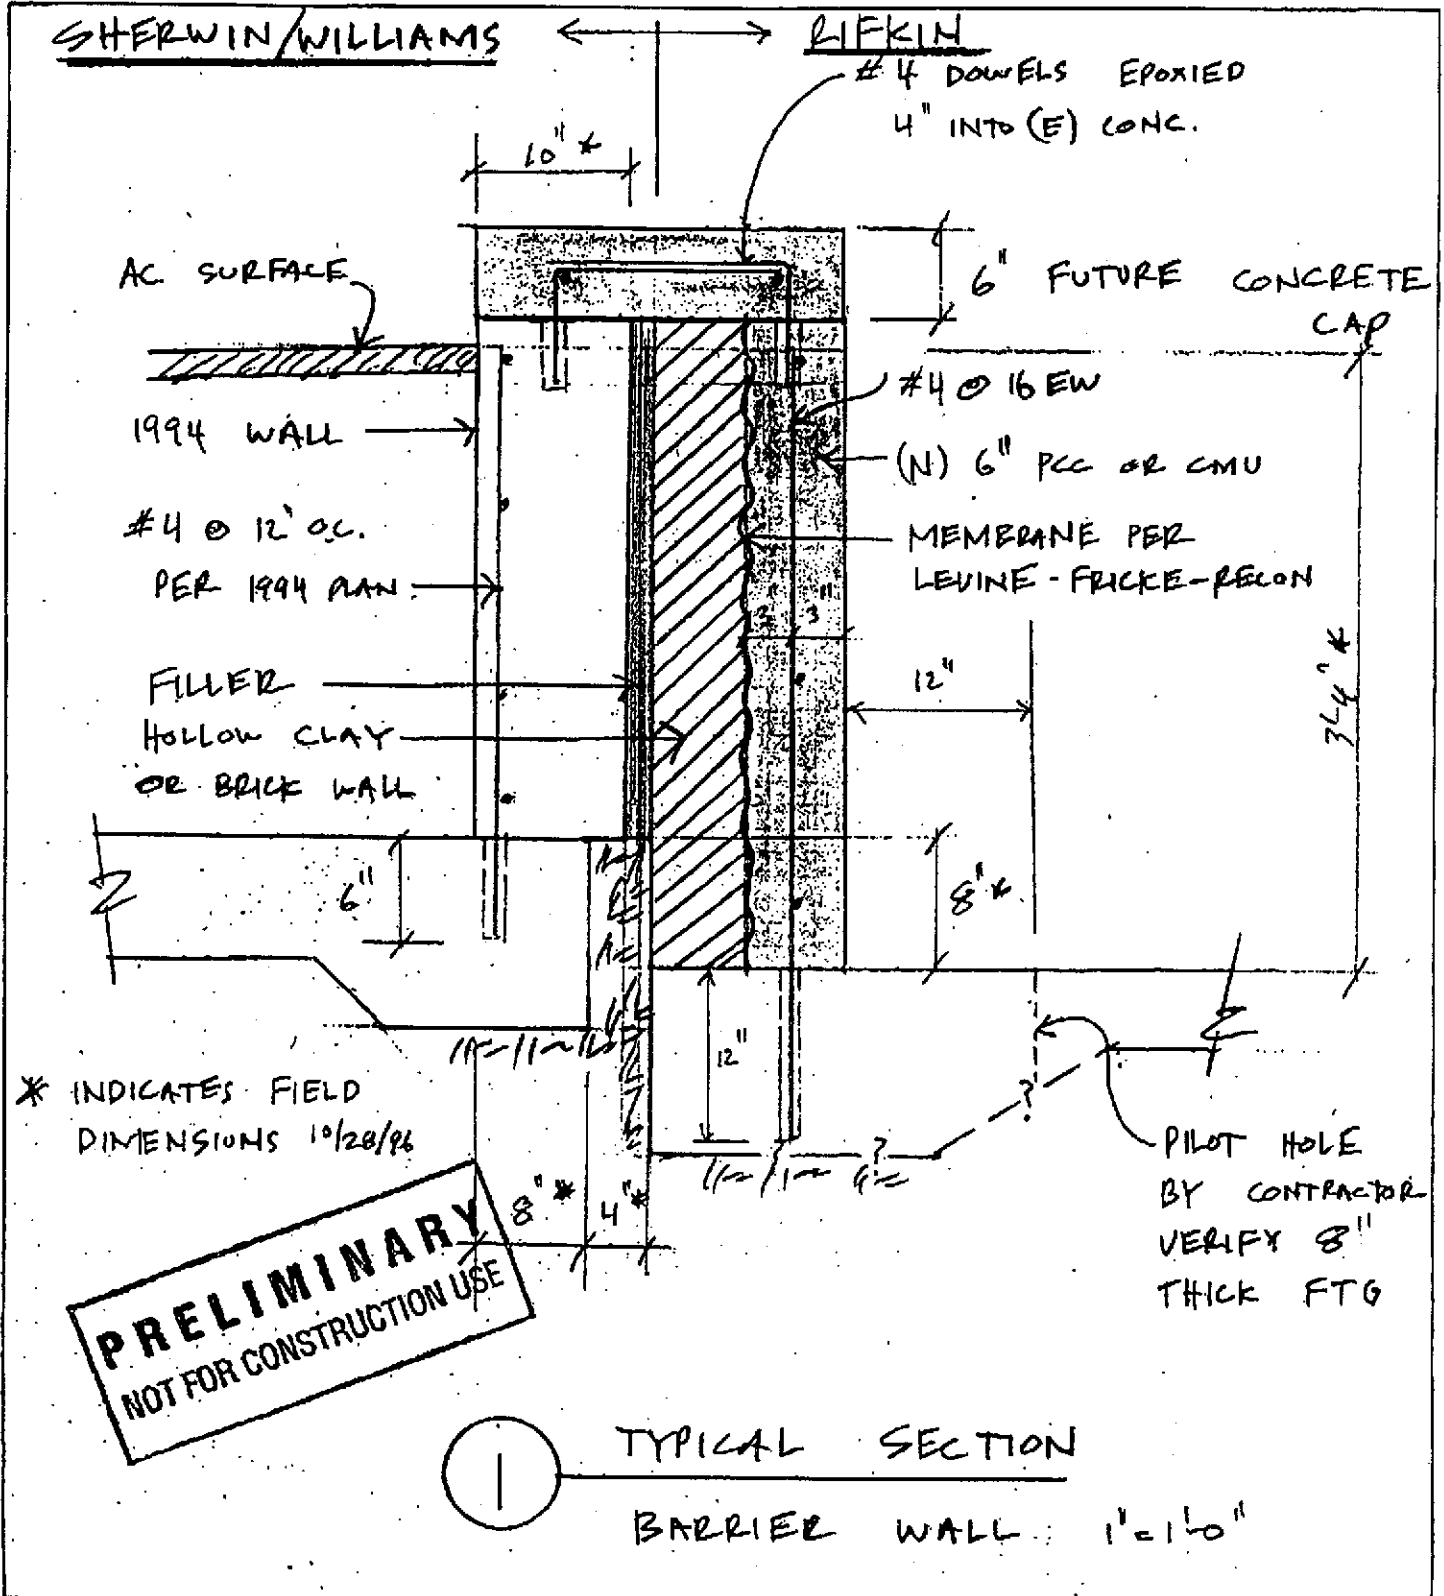 SHERWIN/WILLIAMS
RIFKIN
#4 DOWELS EPOXIED
4" INTO (E) CONC.
10" *
AC SURFACE
6" FUTURE CONCRETE
CAP
#4 @ 16 EW
1994 WALL
(N) 6" PCC OR CMU
#4 @ 12" O.C.
PER 1994 PLAN
MEMBRANE PER
LEVINE-FRICKE-RECON
3" 3"
12"
3'-4" *
FILLER
HOLLOW CLAY
OR BRICK WALL
6"
8" *
12"
?
?
* INDICATES FIELD
DIMENSIONS 10/28/96
PILOT HOLE
BY CONTRACTOR
VERIFY 8"
THICK FTG
8" *
4" *
PRELIMINARY
NOT FOR CONSTRUCTION USE
1
TYPICAL SECTION
BARRIER WALL 1"=1'-0"